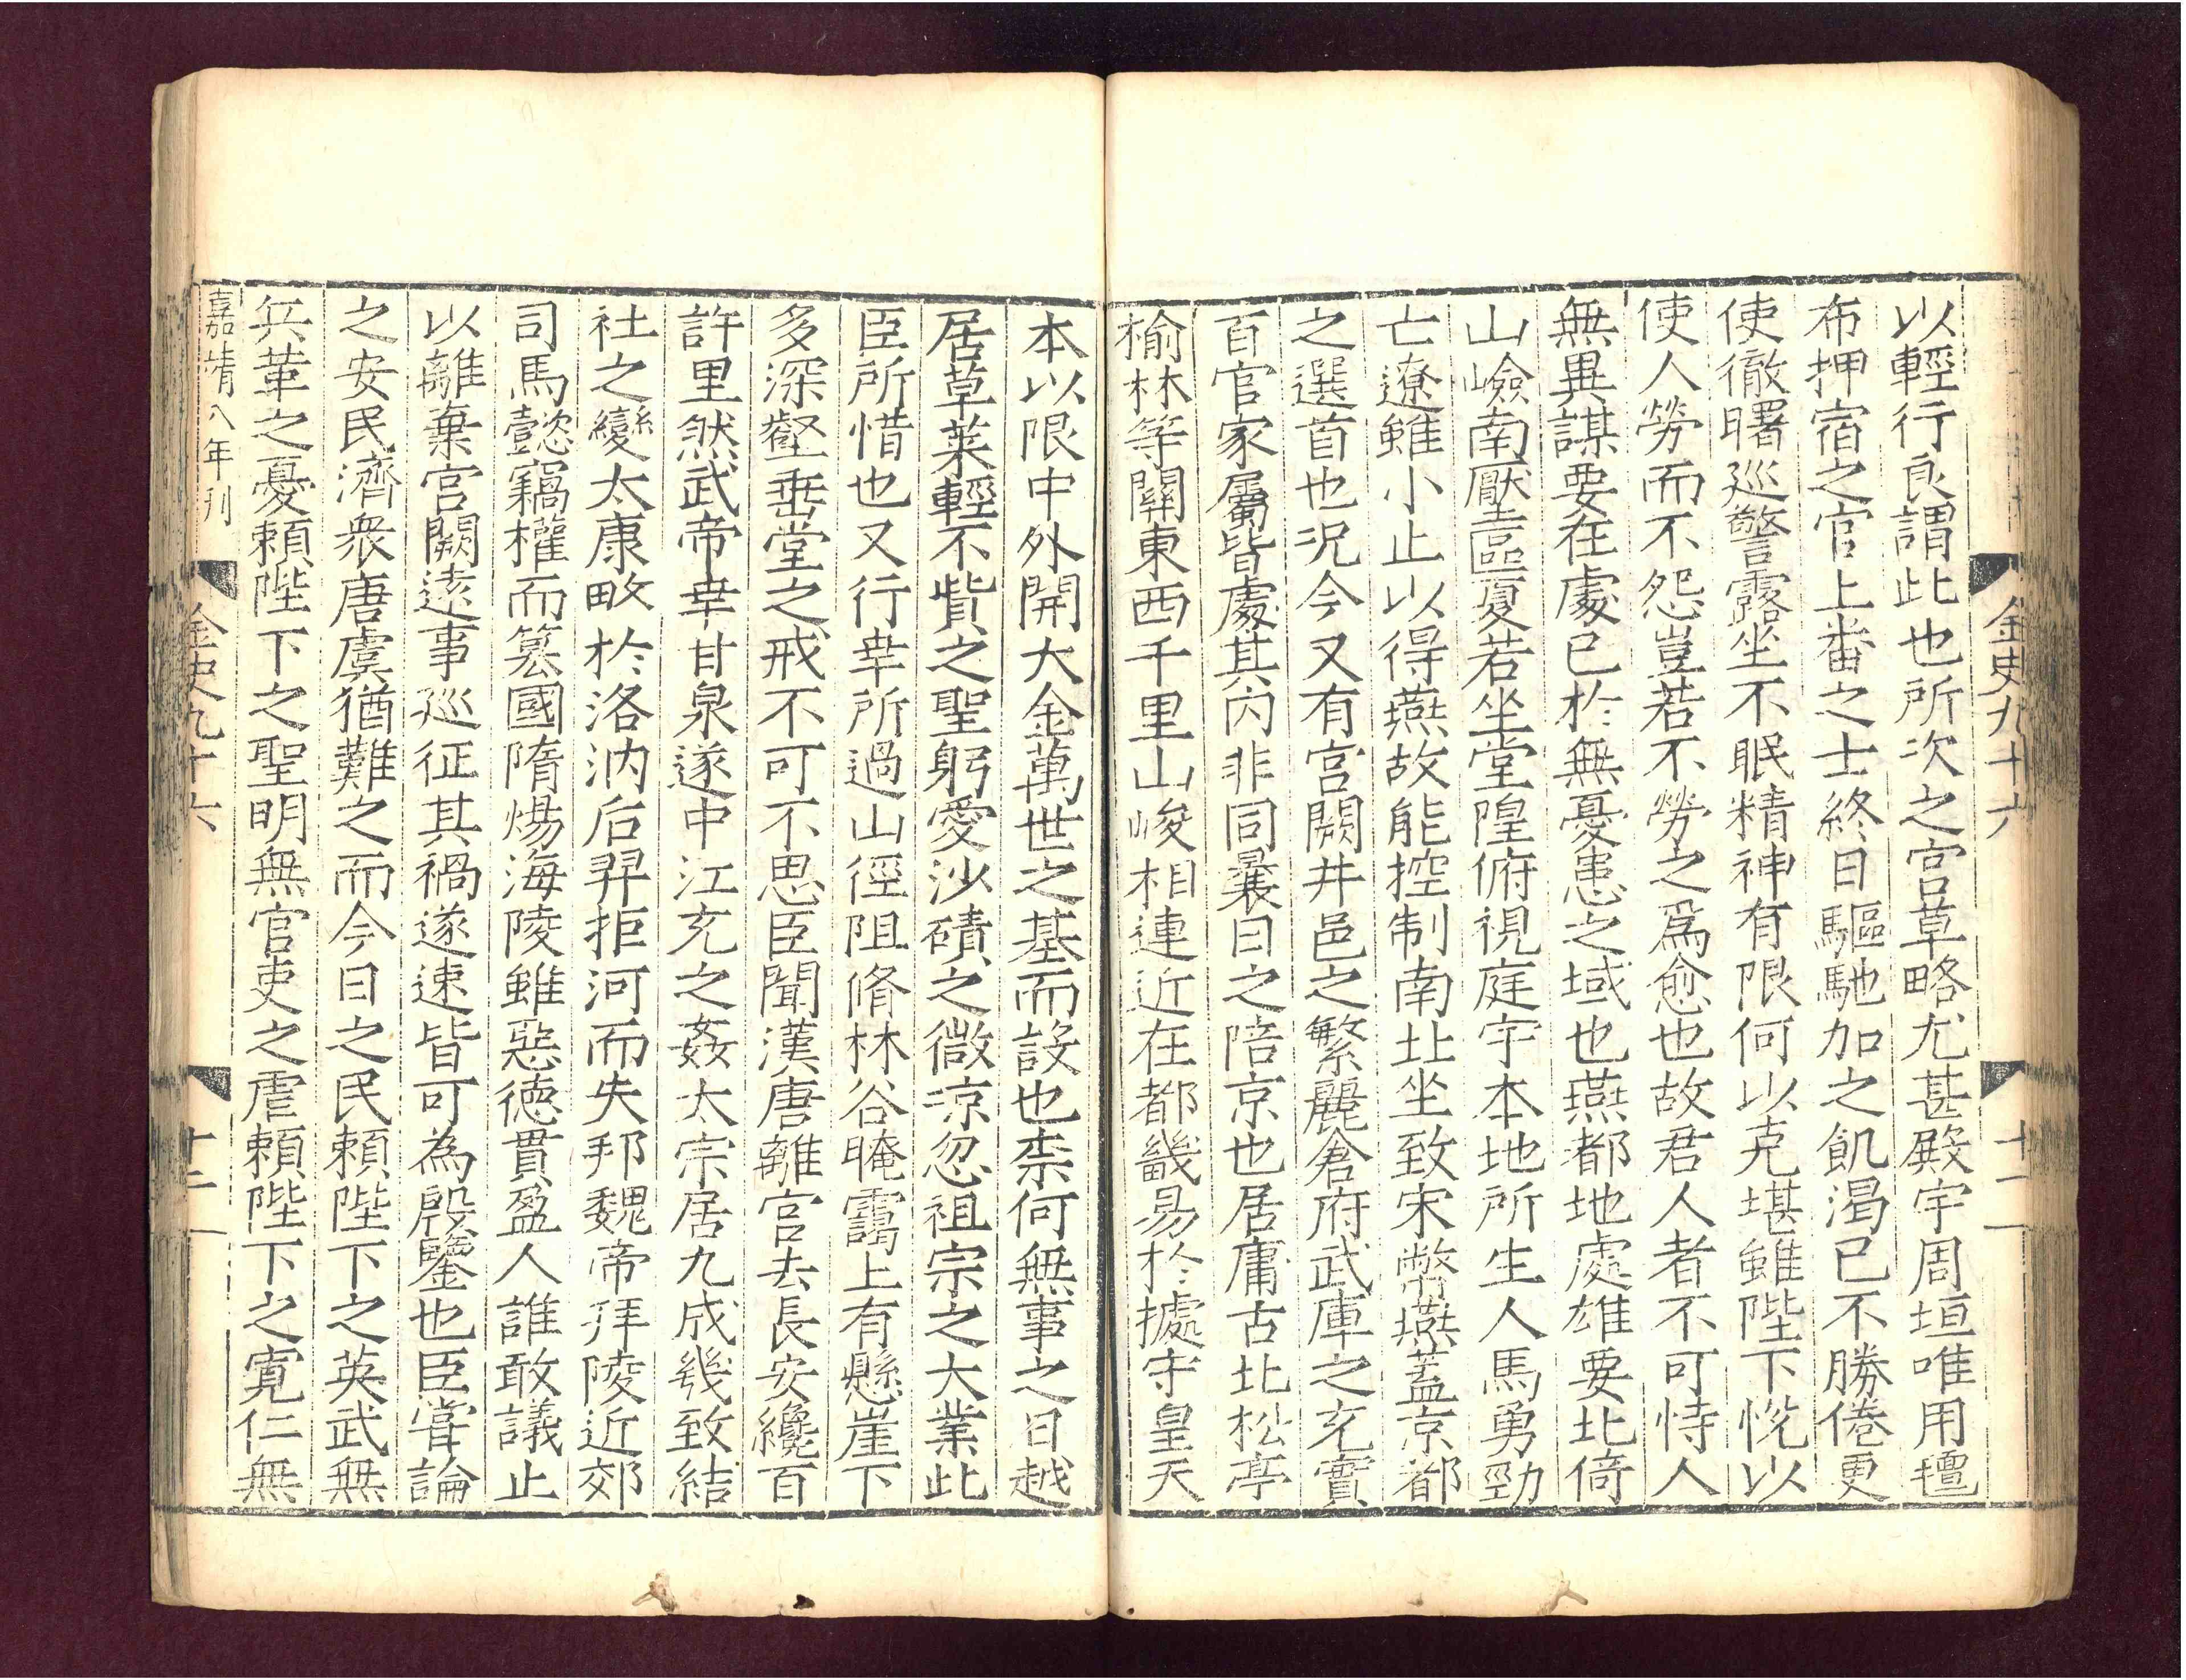 以輕行良謂此也所次之宮草略尤甚殿宇周垣唯用氊
布押宿之官上番之士終日驅馳加之飢渴已不勝倦更
使徹曙巡警露坐不眠精神有限何以克堪雖陛下悅以
使人勞而不怨豈若不勞之爲愈也故君人者不可恃人
無異謀要在處已於無憂患之域也燕都地處雄要北倚
山嶮南壓區夏若坐堂隍俯視庭宇本地所生人馬勇勁
亡遼雖小止以得燕故能控制南北坐致宋幣燕蓋京都
之選首也況今又有宮闕井邑之繁麗倉府武庫之充實
百官家屬皆處其內非同曩日之陪京也居庸古北松亭
榆林等關東西千里山峻相連近在都畿易於據守皇天
金史九十六
十二
本以限中外開大金萬世之基而設也柰何無事之日越
居草萊輕不貲之聖躬愛沙磧之微凉忽祖宗之大業此
臣所惜也又行幸所過山徑阻脩林谷晻靄上有懸崖下
多深壑垂堂之戒不可不思臣聞漢唐離宮去長安纔百
許里然武帝幸甘泉遂中江充之姦太宗居九成幾致結
社之變太康畋於洛汭后羿拒河而失邦魏帝拜陵近郊
司馬懿竊權而篡國隋煬海陵雖惡德貫盈人誰敢議止
以離棄宮闕遠事巡征其禍遂速皆可為殷鑒也臣嘗論
之安民濟衆唐虞猶難之而今日之民賴陛下之英武無
兵革之憂賴陛下之聖明無官吏之虐賴陛下之寬仁無
嘉靖八年刊
金史九十六
十二